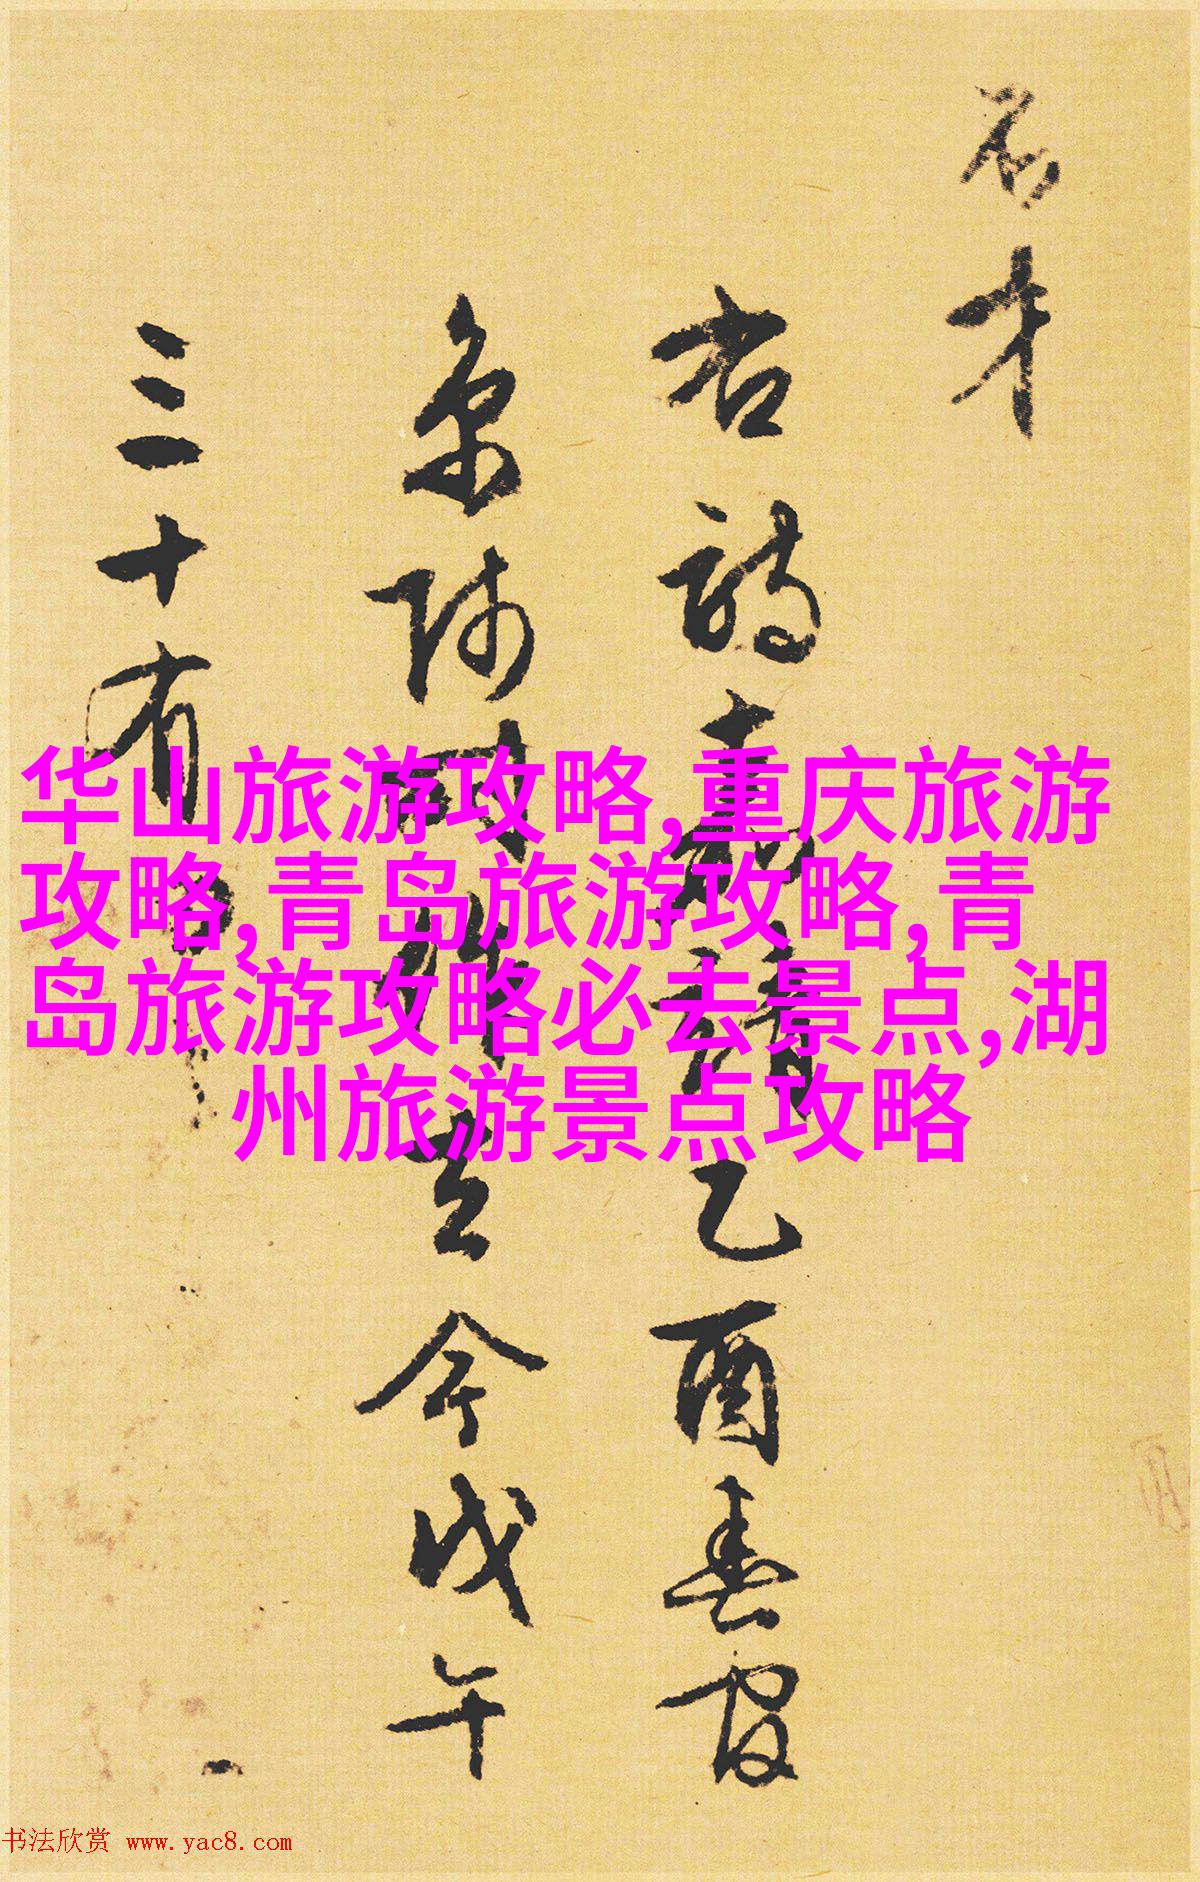 石
才
右詩嘉靖乙酉春寅
京師同作去今戊午
三十有
华山旅游攻略,重庆旅游
攻略,青岛旅游攻略,青
岛旅游攻略必去景点,湖
州旅游景点攻略
书法欣赏 www.yac8.com